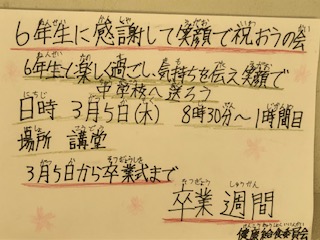 6年生に感謝して笑顔で祝おうの会
6年生と楽しく過ごし、気持ちを伝え笑顔で
中学校へ送ろう
日時 3月5日(木) 8時30分～1時間目
場所 講堂
3月5日から卒業式まで
卒業週間
健康給食委員会